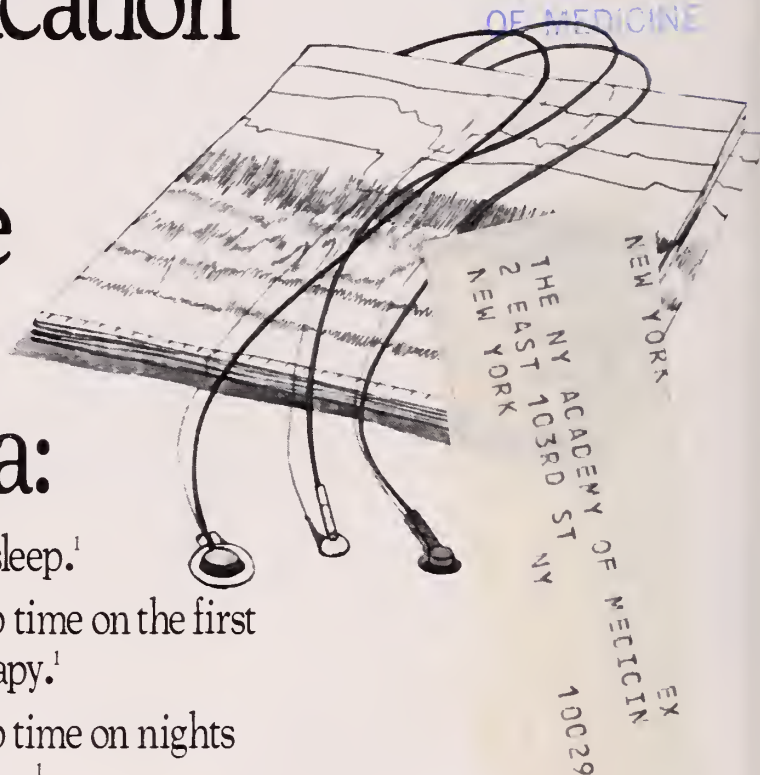 ication
OF MEDICINE
e
a:
sleep.¹
time on the first
apy.¹
time on nights
NEW YORK
EX
THE NY ACADEMY OF MEDICIN
2 EAST 103RD ST NY 10029
NEW YORK